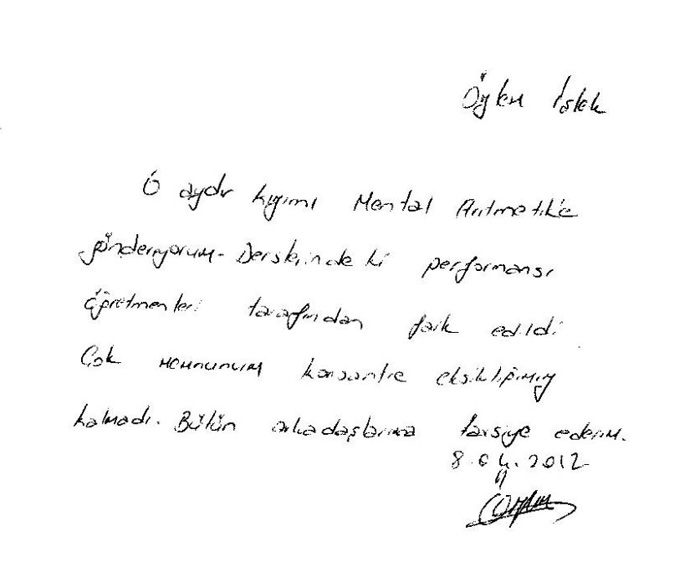 6 aydır kızımı Mental Aritmetik'e
gönderiyorum. Derslerinde ki performansı
öğretmenleri tarafından fark edildi.
Çok memnunum konsantre eksikliğimiz
kalmadı. Bütün arkadaşlarıma tavsiye ederim.
8.04.2012